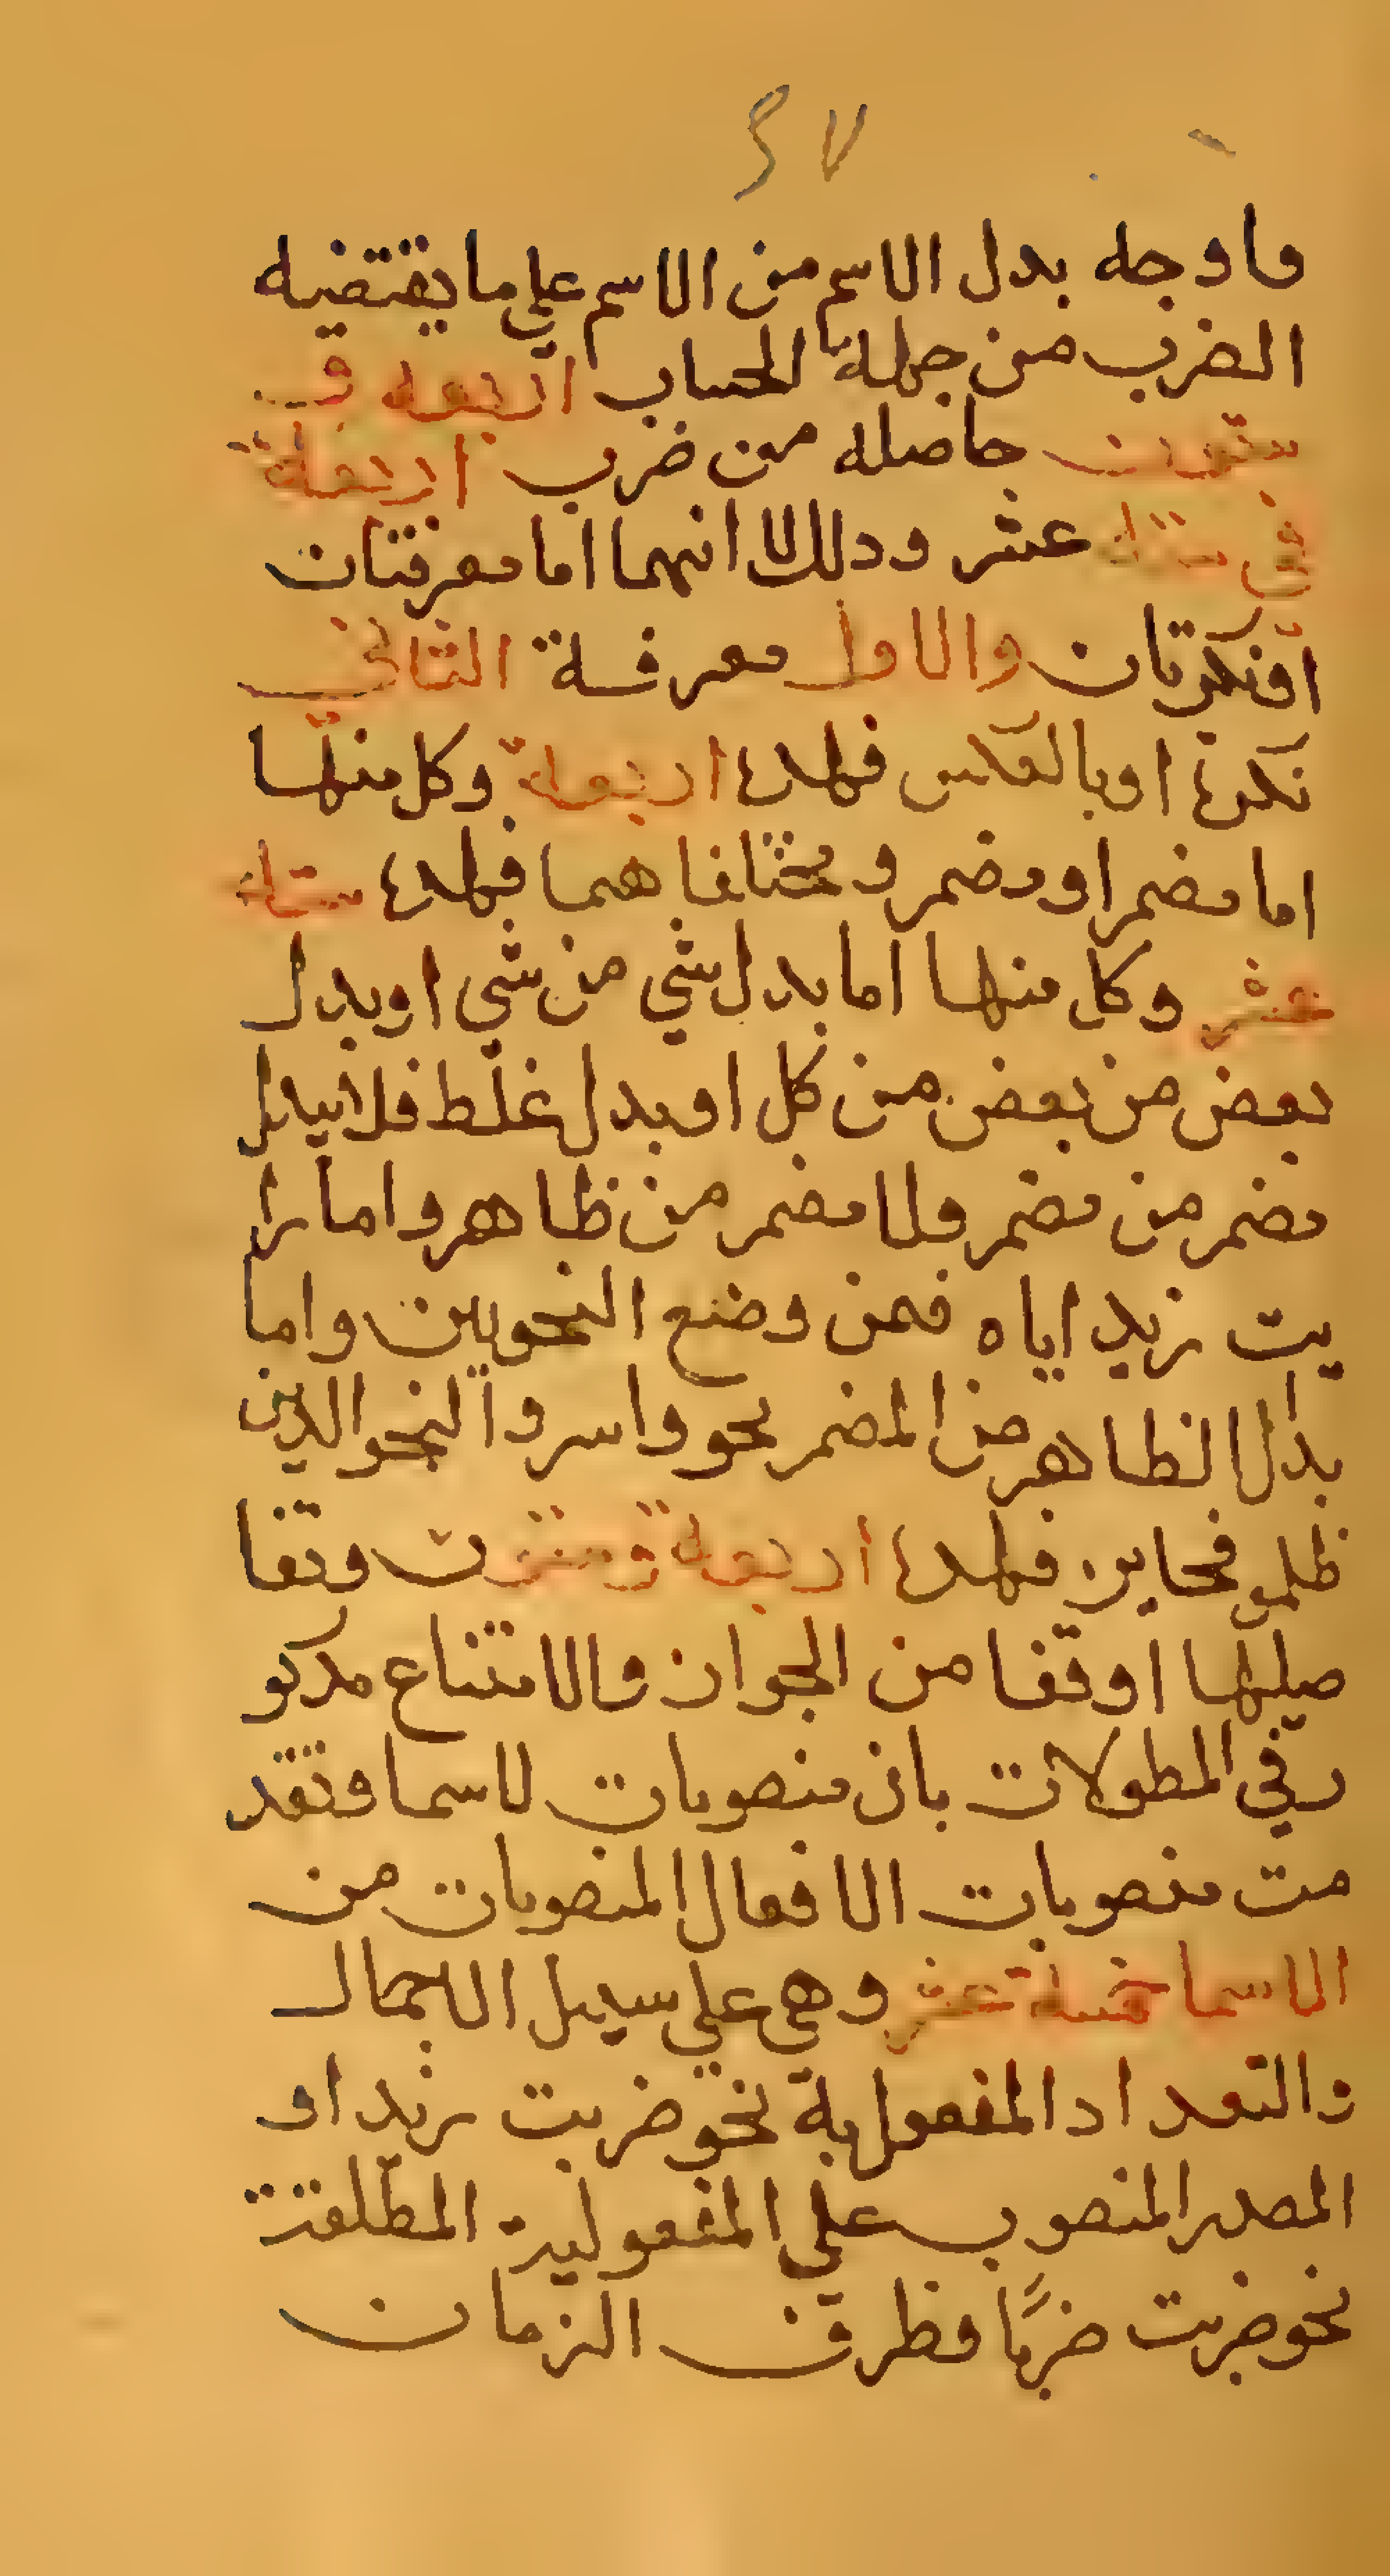 ٤٧
واوجه بدل الاسم من الاسم على ما يقتضيه
الضرب من جهة الحساب اربعه و
ستون حاصله من ضرب اربعة
في ستة عشر وذلك لانهما اما معرفتان
اونكرتان والاول معرفة الثاني
نكرة او بالعكس فهذه اربعة وكل منها
اما مضمر او مضمر ومختلفا هما فهذه ستة
عشر وكل منها اما بدل شي من شي او بدل
بعض من بعض من كل او بدل غلط فلا يبدل
مضمر من مضمر ولا مضمر من ظاهر واما را
يت زيد اياه فمن وضع النحويين واما
بدل الظاهر من المضمر نحو واسروا النجو الذين
ظلمو فجايز فهذه اربعة وستون وتفا
صيلها اوقفا من الجواز والامتناع مذكو
ر في المطولات بان منصوبات لاسما وتقد
مت منصوبات الافعال المنصوبات من
الاسما خمسة عشر وهي على سبيل الاجمال
والتعداد المفعول به نحو ضربت زيدا و
المصدر المنصوب على المفعولية المطلقة
نحو ضربت ضربًا وظرف الزمان